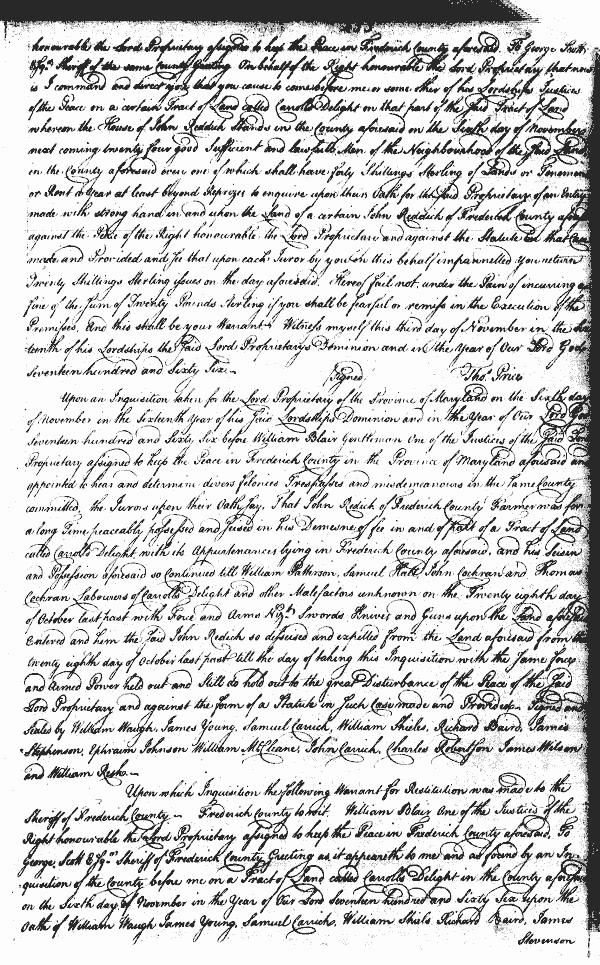 honourable the Lord Proprietary assigned to keep the Peace in Frederick County aforesaid. To George Scott
Esqr. Sheriff of the same County Greeting On behalf of the Right honourable the Lord Proprietary that now
is I command and direct you that you cause to come before me or some other of his Lordships Justices
of the Peace on a certain Tract of Land called Carrolls Delight on that part of the said Tract of Land
whereon the House of John Reddick Stands in the County aforesaid on the Sixth day of November
next coming twenty four good Sufficient and lawfull Men of the Neighbourhood of the said Land
in the County aforesaid every one of which shall have forty Shillings Sterling of Lands or Tenements
or Rent Year at least beyond Reprizes to enquire upon their Oath for the said Proprietary of an Entry
made with strong hand in and upon the Land of a certain John Reddick of Frederick County
against the Peace of the Right honourable the Lord Proprietary and against the Statute in that Case
made and Provided and see that upon each Juror by you on this behalf impannelled you return
Twenty Shillings Sterling issues on the day aforesaid. Hereof fail not, under the Pain of incuring a
fine of the Sum of Twenty Pounds Sterling if you shall be fearful or remiss in the Execution of the
Premises. And this shall be your Warrant. Witness myself this third day of November in the
teenth of his Lordships the said Lord Proprietarys Dominion and in the Year of Our Lord God
Seventeen hundred and Sixty Six Signed Thos. Price
Upon an Inquisition taken for the Lord Proprietary of the Province of Maryland on the Sixth day
of November in the Sixteenth Year of his said Lordships Dominion and in the Year of Our Lord God
Seventeen hundred and Sixty Six before William Blair Gentleman One of the Justices of the said Lord
Proprietary assigned to keep the Peace in Frederick County in the Province of Maryland aforesaid and
appointed to hear and determine divers felonies Trespasses and misdemeanours in the same County
committed, the Jurors upon their Oath say, That John Redick of Frederick County Farmer was for
a long Time peaceably possessed and seised in his Demesne of fee in and of part of a Tract of Land
called Carrolls Delight, with its Appurtenances lying in Frederick County aforesaid, and his Seisen
and Possession aforesaid so continued till William Patterson, Samuel Hall, John Cochran and Thomas
Cochran Labourers of Carrolls Delight and other Malefactors unknown on the Twenty eighth day
of October last past with Force and Arms Swords Knives and Guns upon the Land aforesaid
Entered and him the said John Redick so disseised and expelled from the Land aforesaid from the
twenty eighth day of October last past till the day of taking this Inquisition with the same force
and Armed Power held out and still do hold out to the great Disturbance of the Peace of the said
Lord Proprietary and against the form of a Statute in such Case made and Provided. Signed and
Sealed by William Waugh, James Young, Samuel Carrick, William Shiels, Richard Baird, James
Stephenson, Ephraim Johnson William McCleane, John Carrick, Charles Robertson James Wilson
and William Resh.
Upon which Inquisition the following Warrant for Restitution was made to the
Sheriff of Frederick County Frederick County to wit. William Blair One of the Justices of the
Right honourable the Lord Proprietary assigned to keep the Peace in Frederick County aforesaid, To
George Scott Esqr. Sheriff of Frederick County Greeting as it appeareth to me and as found by an In-
quisition of the County before me on a Tract of Land called Carrolls Delight in the County aforesaid
on the Sixth day of November in the Year of Our Lord Seventeen hundred and Sixty Six upon the
Oath of William Waugh James Young, Samuel Carrick, William Shiels Richard Baird, James
Stevenson